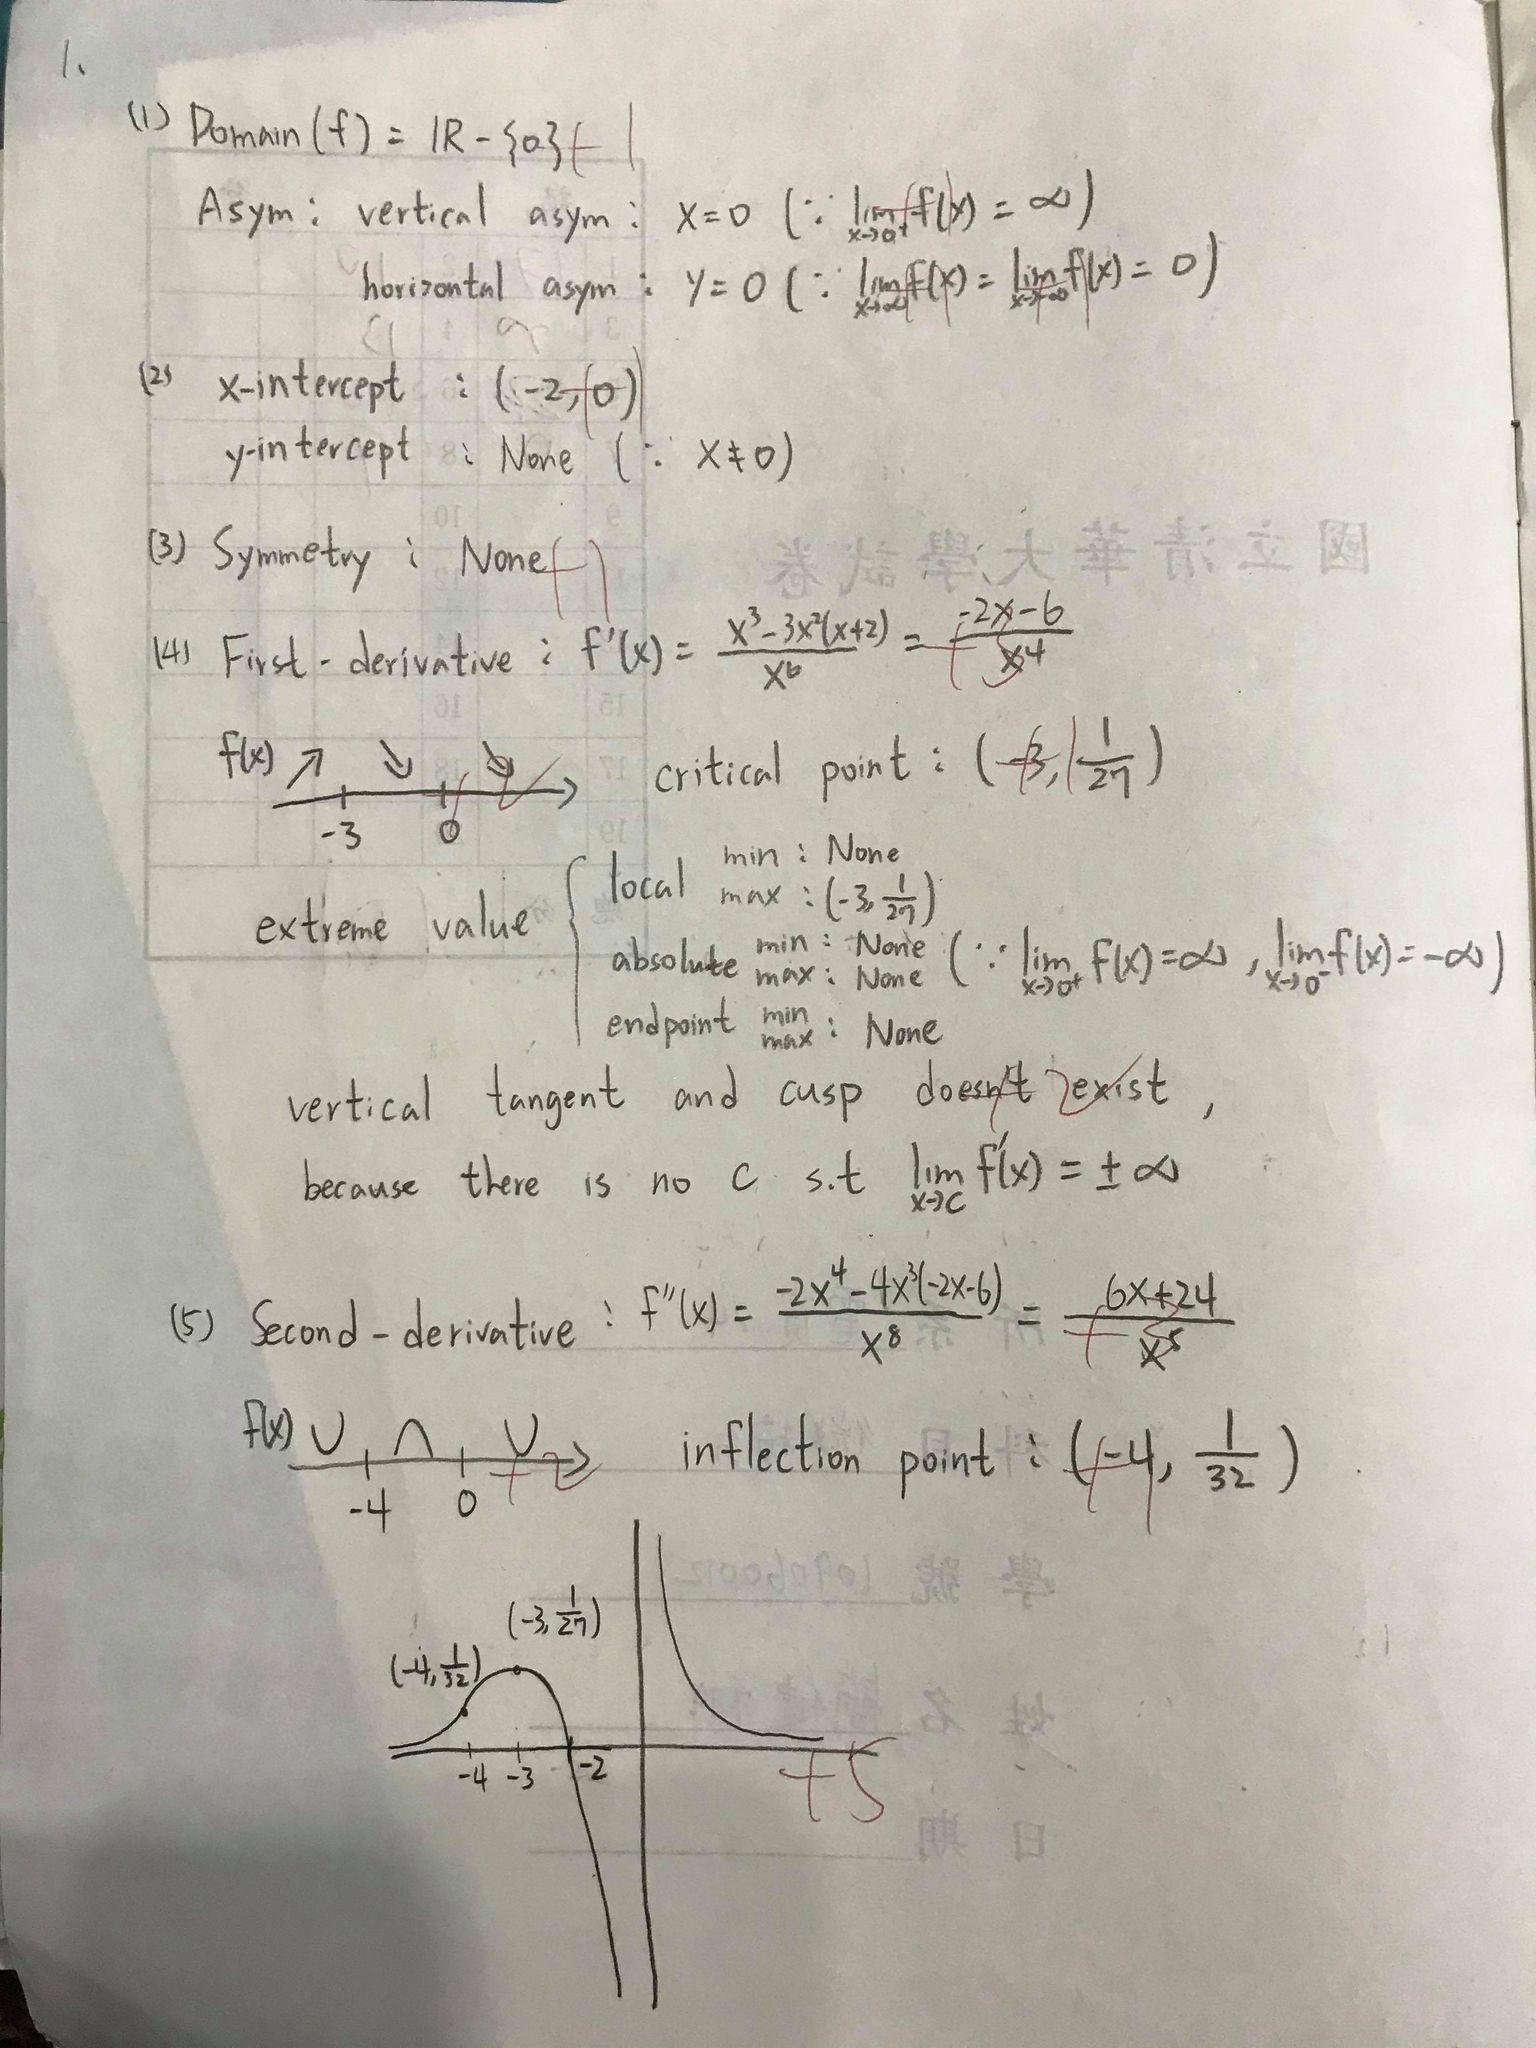 1.
(1) Domain(f) = IR - {0} +1
Asym : vertical asym : x=0 (∵ lim x→0+ f(x) = ∞) +1
horizontal asym : y=0 (∵ lim x→∞ f(x) = lim x→-∞ f(x) = 0) +1 +1
(2) x-intercept : (-2, 0) +1
y-intercept : None (∵ x≠0)
(3) Symmetry : None +1
(4) First-derivative : f'(x) = x³-3x²(x+2) / x⁶ = -2x-6 / x⁴ +3
f(x) ↗ ↘ ↘ +2
-3 0
critical point : (-3, 1/27) +1
extreme value
local min : None
max : (-3, 1/27)
absolute min : None
max : None (∵ lim x→0+ f(x)=∞, lim x→0- f(x)=-∞)
endpoint min max : None
vertical tangent and cusp doesn't exist, +2
because there is no c s.t lim x→c f'(x) = ±∞
(5) Second-derivative : f''(x) = -2x⁴-4x³(-2x-6) / x⁸ = 6x+24 / x⁵ +3
f(x) ∪ ∩ ∪ +2
-4 0
inflection point : (-4, 1/32) +1
(-3, 1/27)
(-4, 1/32)
-4 -3 -2
+5
國立清華大學試卷
學號 109060012
姓名
日期